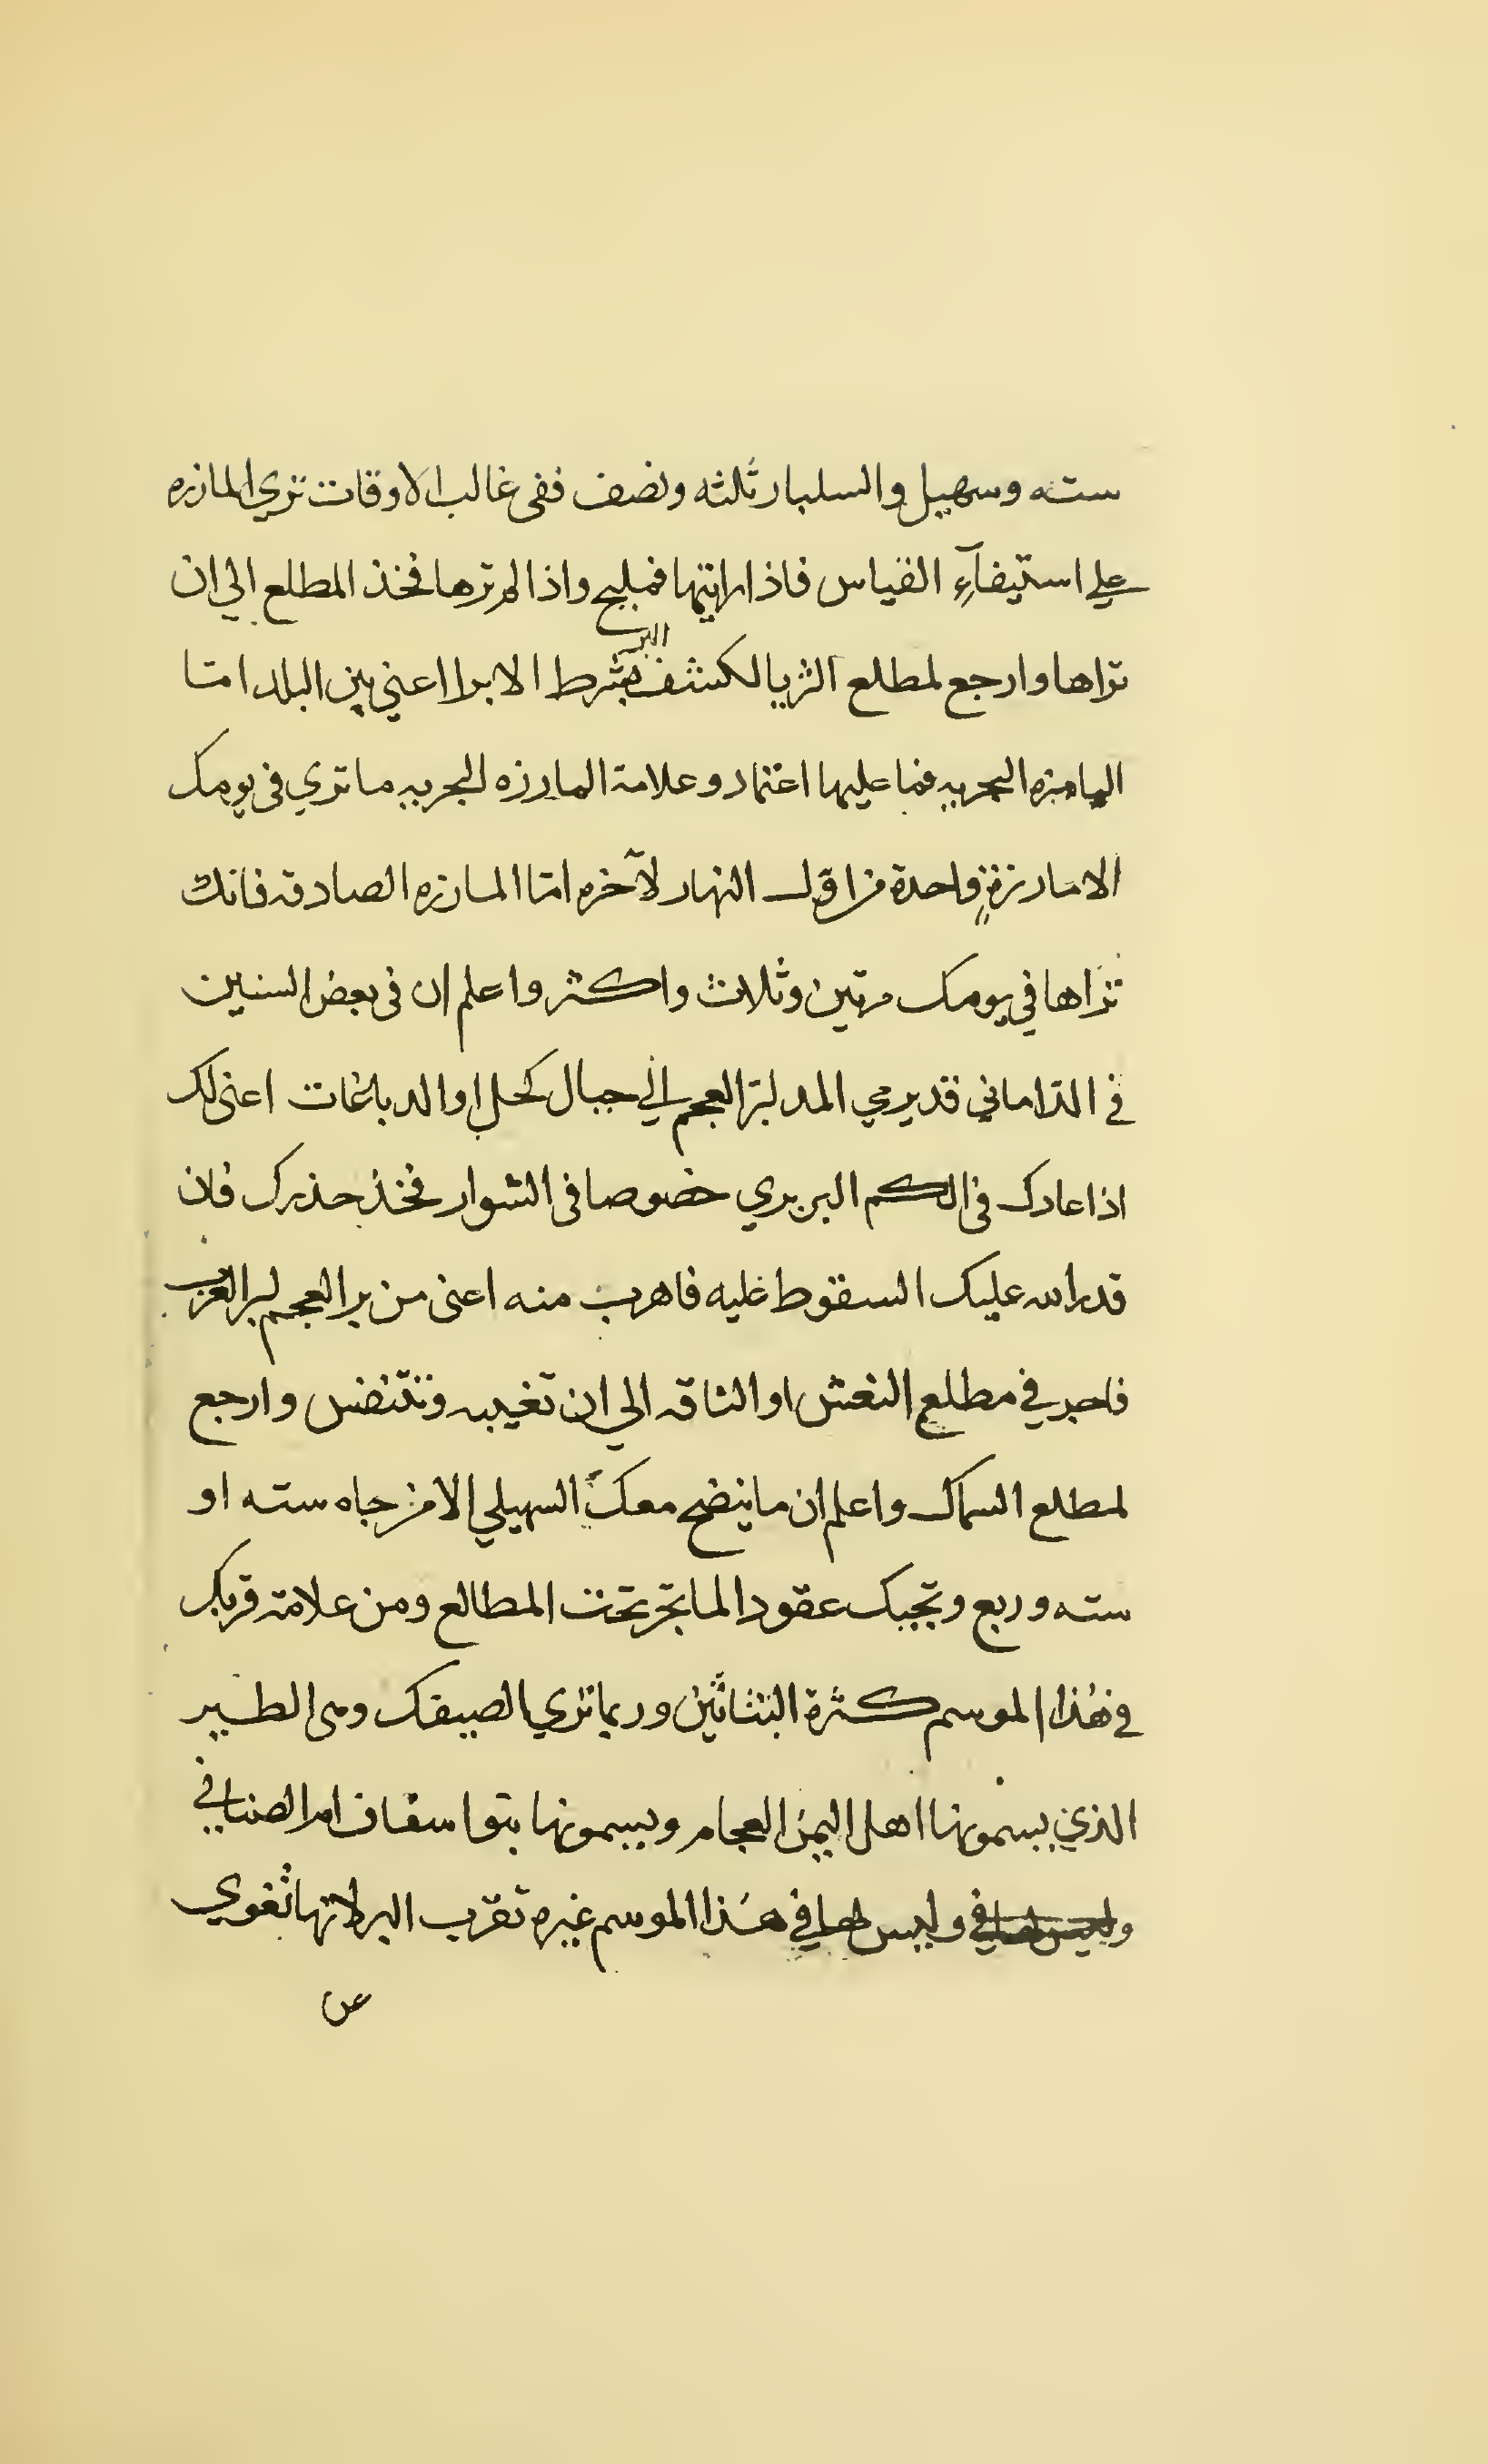 سته وسهيل والسلبار ثلثه ونصف ففى غالب الاوقات تري المازره
علي استيفآءِ القياس فاذا رايتها فمليح واذا لم ترها فخذ المطلع الي ان
تراها وارجع لمطلع الثريا لكشف البر بشرط الا برا اعني بين البلد امّا
المارزه البحريه فما عليها اعتماد وعلامة المارزه البحريه ما تري فى يومك
الا مارزةٍ واحدة من اوّل النهار لآخره امّا المارزه الصادقه فانك
تراها في يومك مرتين وثلاث واكثر واعلم ان فى بعض السنين
في الدّاماني قد يرمي المد لبرّ العجم الي جبال كحل او الدباغات اعنى لك
اذا عادك فى الكم البربري خصوصا فى الشوار فخذ حذرك فان
قدر الله عليك السقوط عليه فاهرب منه اعنى من بر العجم لبر العرب
فاجر في مطلع النعش او الناقه الي ان تغيبه وتتنفس وارجع
لمطلع السماك واعلم ان ما ينضح معك السهيلي الا من جاه سته او
سته وربع وتجيك عقود الما تجر تحت المطالع ومن علامة قربك
في هذا الموسم كثرة النثاثين وربما تري الصيقك ومى الطير
الذي يسمونها اهل اليمن العجام ويسمونها بتوا سقاف ام الصنافي
وليس لها في وليس لها في هذا الموسم غيره تقرب البر لانها تغوي
عن